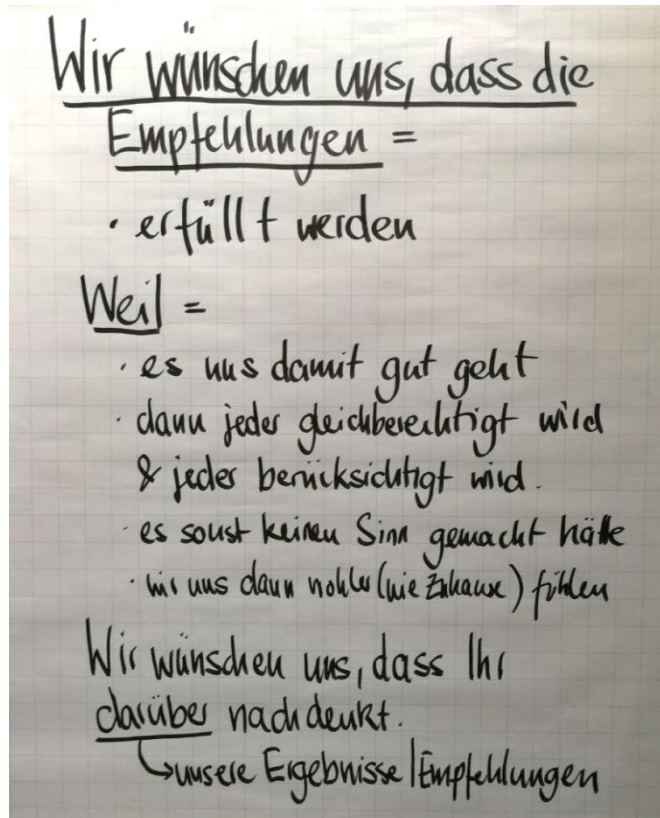 Wir wünschen uns, dass die
Empfehlungen =
· erfüllt werden
Weil =
· es uns damit gut geht
· dann jeder gleichberechtigt wird
& jeder berücksichtigt wird.
· es sonst keinen Sinn gemacht hätte
· wir uns dann wohler (wie Zuhause) fühlen
Wir wünschen uns, dass Ihr
darüber nachdenkt.
↳ unsere Ergebnisse | Empfehlungen